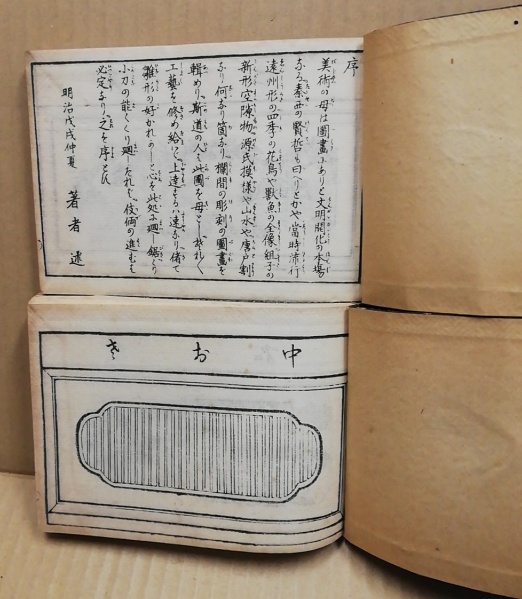 序
美術の母は圖畫にありと文明開化の本場
なる泰西の賢哲も曰へりとかや當時流行
遠州形の四季の花鳥や獸魚の全像組子の
新形空隙物源氏模様や山水や唐戸割
なり何なり箇なり欄間の彫刻の圖畫を
輯めり斯道の人々此圖を母とし
工藝を修め給いて上達するは速なり偖て
雛形の好かれあしと心を此処に廻し鋸
小刀の能くくり廻れを伎倆の進むも
必定なり之を序とひ
明治戊戌仲夏
著者述
中おき